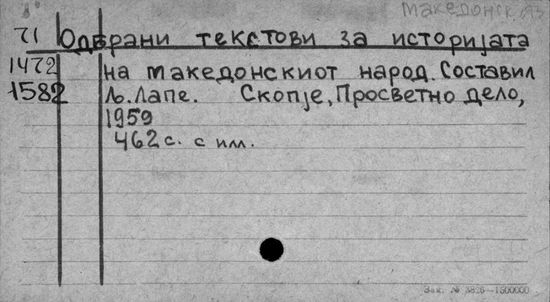 македонск. яз.
71 Одбрани текстови за историјата
1472 на македонскиот народ. Составил
1582 Љ. Лапе. Скопје, Просветно дело,
1959
462 с. с илл.
Зак. № 3826—1500000